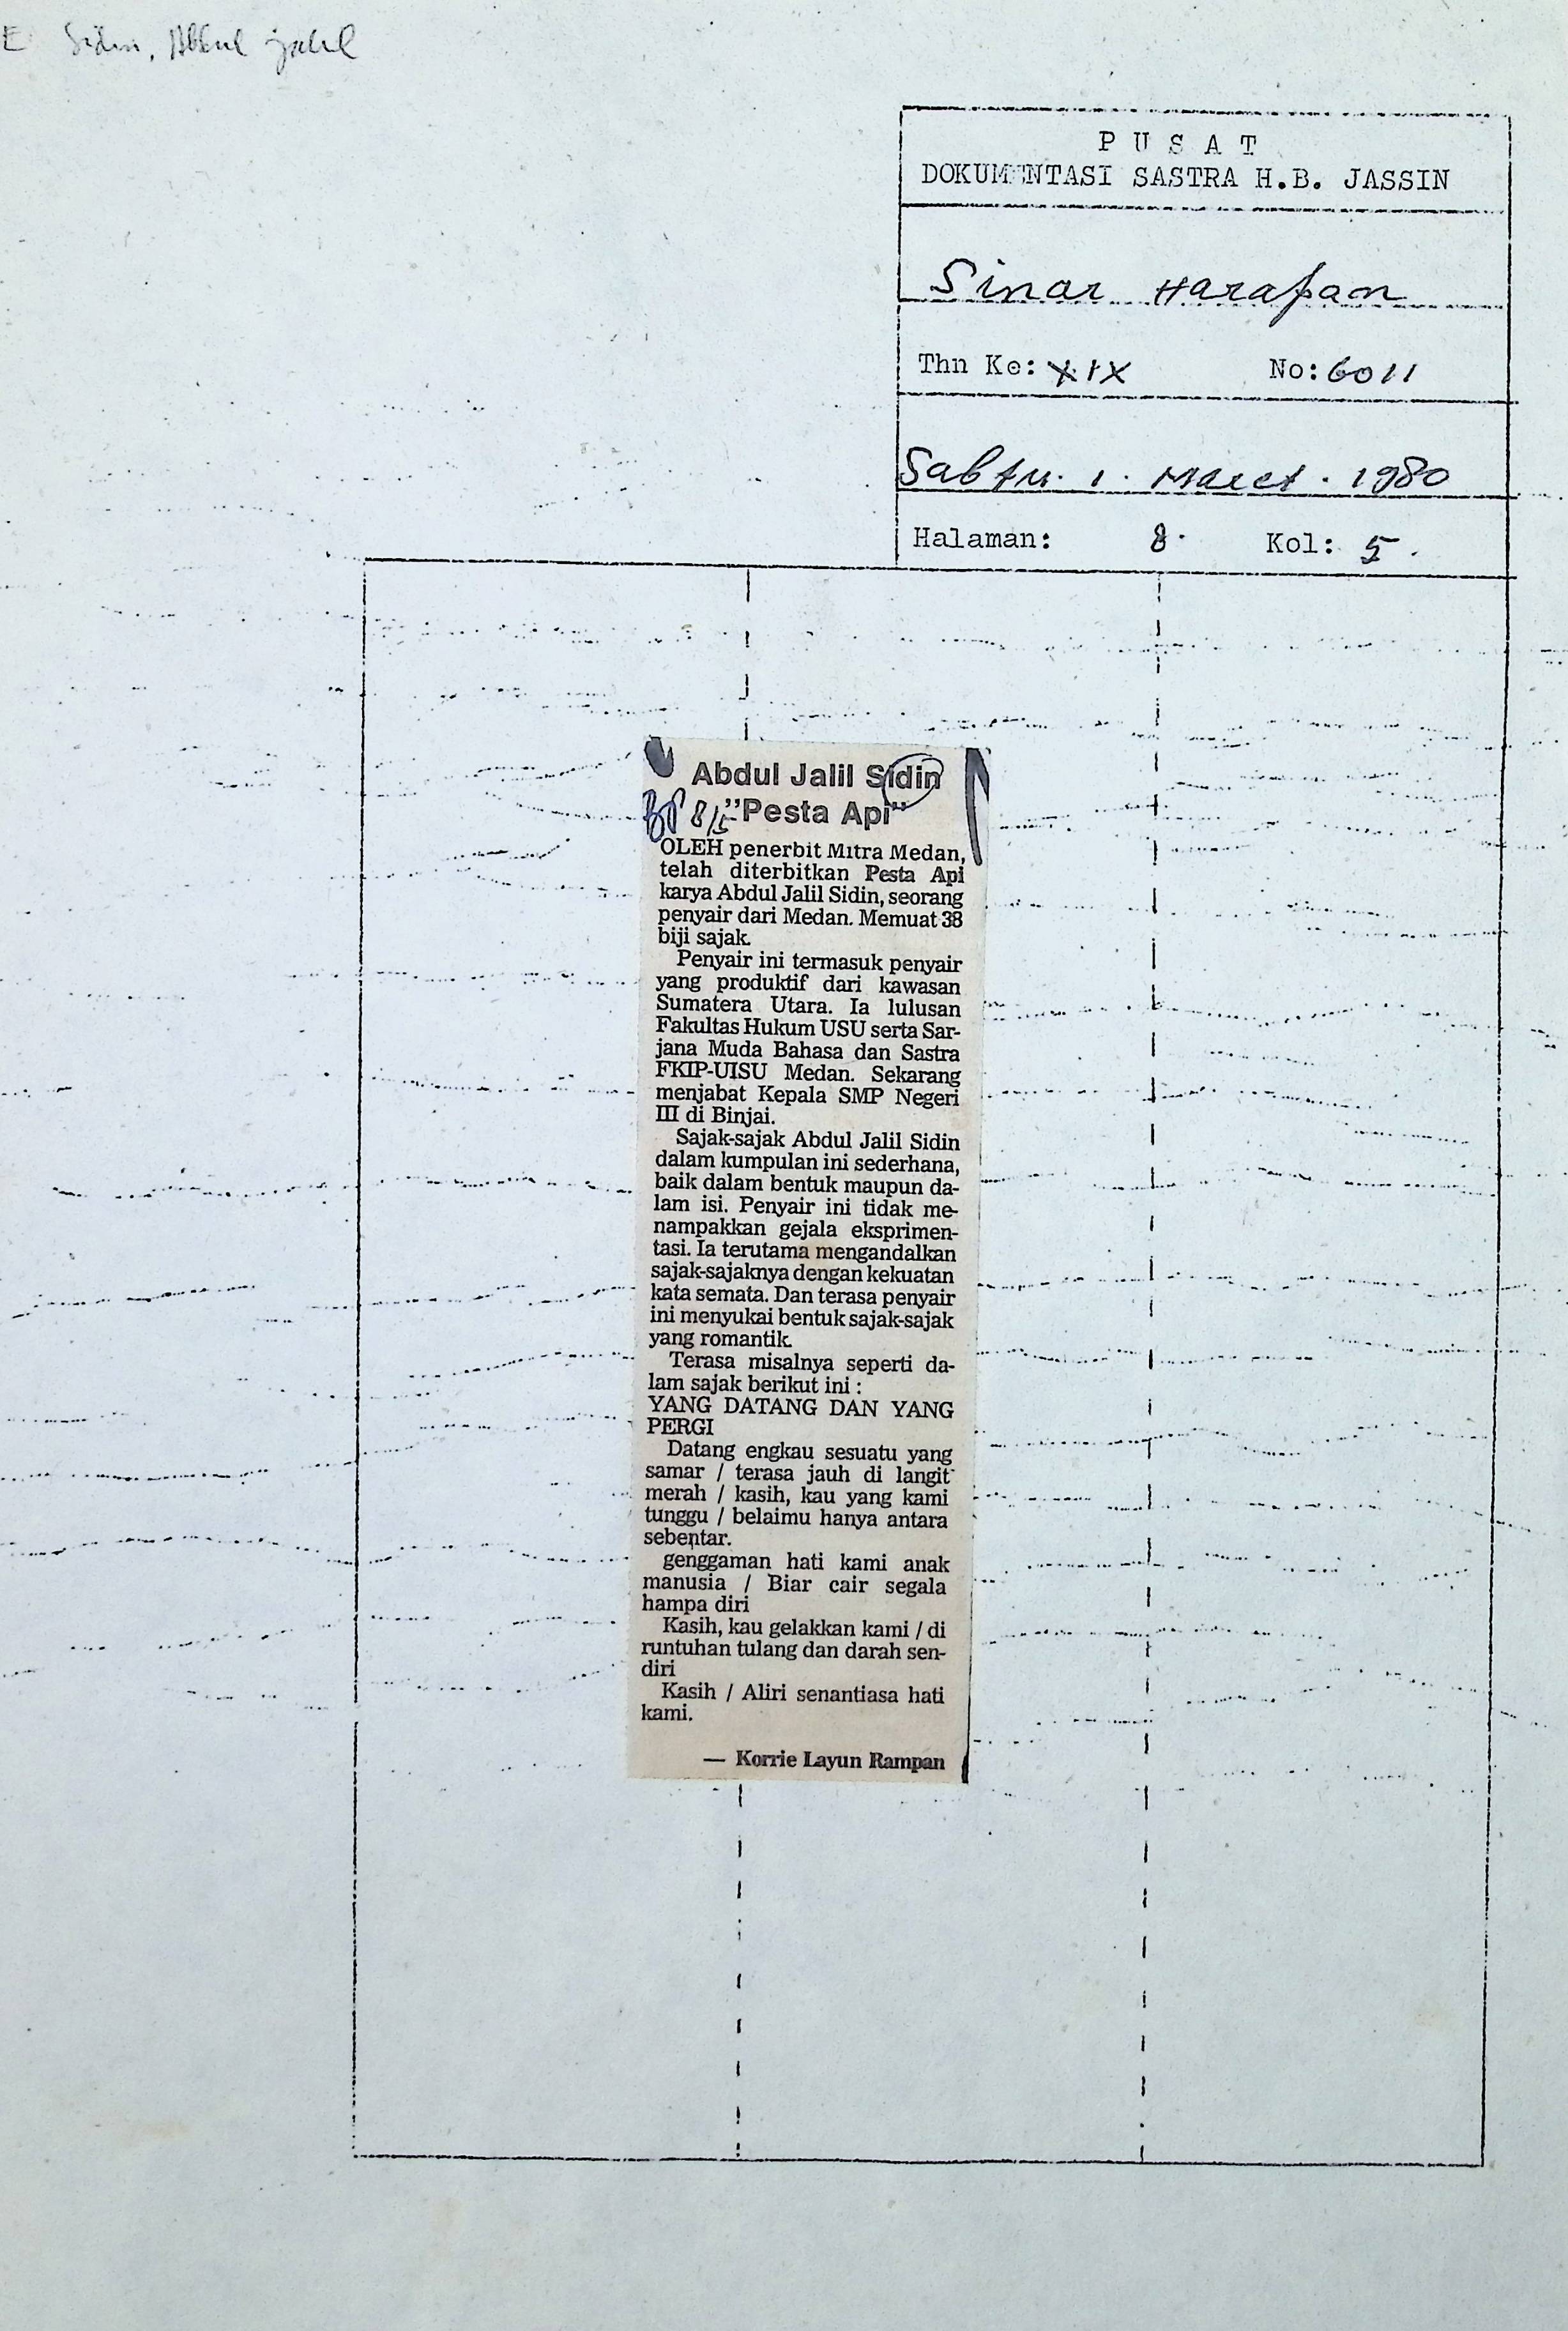 E Sidin, Abdul Jalil
P U S A T
DOKUMENTASI SASTRA H.B. JASSIN
Sinar Harapan
Thn Ke: XIX No: 6011
Sabtu. 1. Maret. 1980
Halaman: 8. Kol: 5.
Abdul Jalil Sidin
8/5 "Pesta Api"
OLEH penerbit Mitra Medan,
telah diterbitkan Pesta Api
karya Abdul Jalil Sidin, seorang
penyair dari Medan. Memuat 38
biji sajak.
Penyair ini termasuk penyair
yang produktif dari kawasan
Sumatera Utara. Ia lulusan
Fakultas Hukum USU serta Sar-
jana Muda Bahasa dan Sastra
FKIP-UISU Medan. Sekarang
menjabat Kepala SMP Negeri
III di Binjai.
Sajak-sajak Abdul Jalil Sidin
dalam kumpulan ini sederhana,
baik dalam bentuk maupun da-
lam isi. Penyair ini tidak me-
nampakkan gejala eksprimen-
tasi. Ia terutama mengandalkan
sajak-sajaknya dengan kekuatan
kata semata. Dan terasa penyair
ini menyukai bentuk sajak-sajak
yang romantik.
Terasa misalnya seperti da-
lam sajak berikut ini :
YANG DATANG DAN YANG
PERGI
Datang engkau sesuatu yang
samar / terasa jauh di langit
merah / kasih, kau yang kami
tunggu / belaimu hanya antara
sebentar.
genggaman hati kami anak
manusia / Biar cair segala
hampa diri
Kasih, kau gelakkan kami / di
runtuhan tulang dan darah sen-
diri
Kasih / Aliri senantiasa hati
kami.
— Korrie Layun Rampan